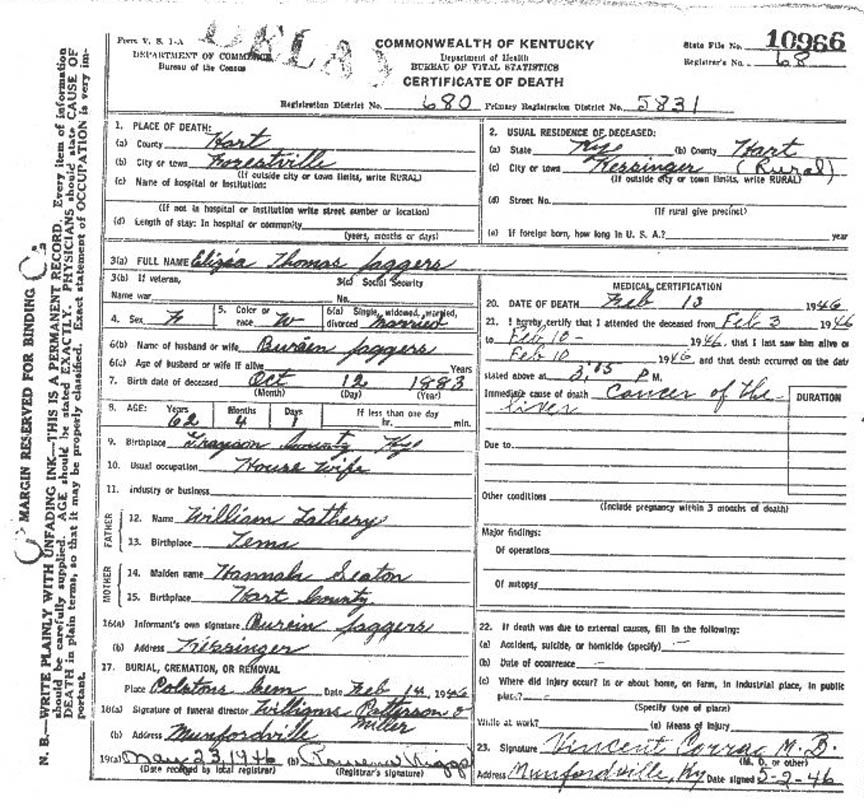 Form V. S. 1-A
DEPARTMENT OF COMMERCE
Bureau of the Census
COMMONWEALTH OF KENTUCKY
Department of Health
BUREAU OF VITAL STATISTICS
CERTIFICATE OF DEATH
State File No. 10966
Registrar's No. 68
Registration District No. 680 Primary Registration District No. 5831
1. PLACE OF DEATH:
(a) County Hart
(b) City or town Forestville
(If outside city or town limits, write RURAL)
(c) Name of hospital or institution:
(If not in hospital or institution write street number or location)
(d) Length of stay: In hospital or community
(years, months or days)
2. USUAL RESIDENCE OF DECEASED:
(a) State Ky (b) County Hart
(c) City or town Kessinger (Rural)
(If outside city or town limits, write RURAL)
(d) Street No.
(If rural give precinct)
(e) If foreign born, how long in U. S. A.? year
3(a) FULL NAME Thomas Jaggers
3(b) If veteran,
Name war
3(c) Social Security
No.
4. Sex F
5. Color or race W
6(a) Single, widowed, married, divorced Married
6(b) Name of husband or wife Jaggers
6(c) Age of husband or wife if alive Years
7. Birth date of deceased Oct 12 1883
(Month) (Day) (Year)
8. AGE: Years Months Days If less than one day
62 4 1 hr. min.
9. Birthplace Grayson County Ky
10. Usual occupation House Wife
11. Industry or business
FATHER
12. Name William
13. Birthplace
MOTHER
14. Maiden name Hannah Seaton
15. Birthplace Hart County
16(a) Informant's own signature Jaggers
(b) Address Kessinger
17. BURIAL, CREMATION, OR REMOVAL
Place Cem Date Feb 14, 1946
18(a) Signature of funeral director Williams Patterson & Miller
(b) Address Munfordville
19(a) May 23, 1946 (b)
(Date received by local registrar) (Registrar's signature)
MEDICAL CERTIFICATION
20. DATE OF DEATH Feb 13 1946
21. I hereby certify that I attended the deceased from Feb 3 1946
to Feb 10- 1946, that I last saw him alive on
Feb 10 1946, and that death occurred on the date
stated above at P M.
Immediate cause of death Cancer of the
liver
DURATION
Due to
Other conditions
(Include pregnancy within 3 months of death)
Major findings:
Of operations
Of autopsy
22. If death was due to external causes, fill in the following:
(a) Accident, suicide, or homicide (specify) -
(b) Date of occurrence -
(c) Where did injury occur? In or about home, on farm, in industrial place, in public
place? -
(Specify type of place)
While at work? (e) Means of injury
23. Signature Vincent M. D.
(M. D. or other)
Address Munfordville, Ky Date signed 5-2-46
MARGIN RESERVED FOR BINDING
N. B.—WRITE PLAINLY WITH UNFADING INK—THIS IS A PERMANENT RECORD. Every item of information
should be carefully supplied. AGE should be stated EXACTLY. PHYSICIANS should state CAUSE OF
DEATH in plain terms, so that it may be properly classified. Exact statement of OCCUPATION is very im-
portant.